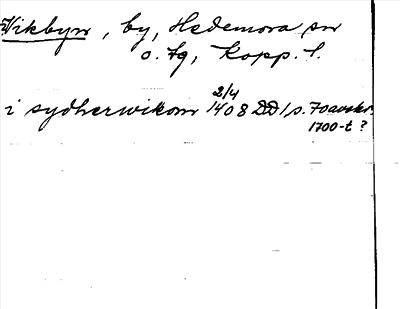 Vikbyn, by, Hedemora sn
o. tg, Kopp. l.
2/4
i sydherwikom 1408 DD 1 s. 70 avskr.
1700-t ?